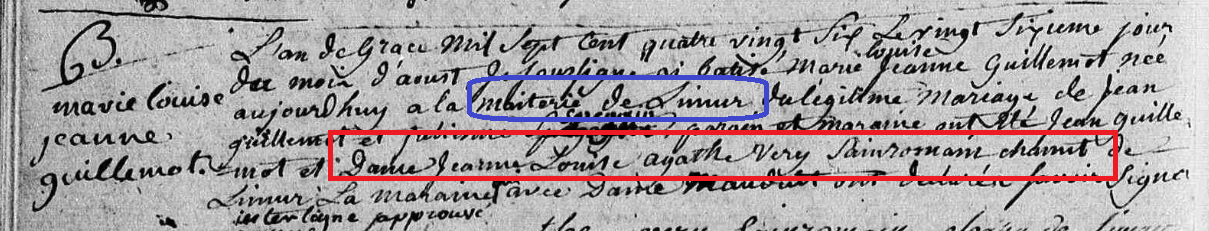 B.
marie louise
jeanne
guillemot.
L'an de Grace mil Sept Cent quatre vingt Six Le vingt Sixieme jour
du mois d'aoust je soussigné ai batisé Marie louise Jeanne Guillemot née
aujourdhuy a la maiterie de Limur du legitime Mariage de Jean
guillemot et parain et maraine ont Eté Jean Guille
mot et Dame Jeanne Louise agathe Very Sainromain chanut de
Limur La Maraine avec Dame Mauduit ont declarés Signer
interligne approuvé